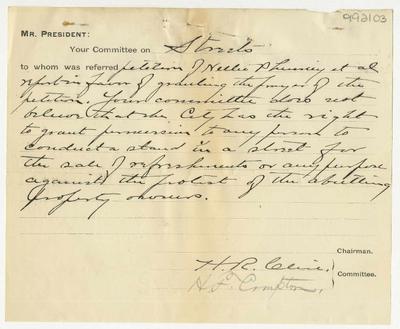 992103
MR. PRESIDENT:
Your Committee on Streets
to whom was referred petition of Nellie Phinney et al
report in favor of granting the prayer of the
petition. Your committee does not
believe that the City has the right
to grant permission to any person to
conduct a stand in a street for
the sale of refreshments or any purpose
against the protest of the abutting
property owners.
Chairman.
H. R. Cline.
Committee.
H. F. Compton.